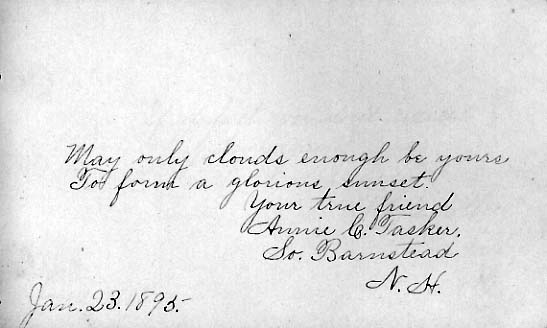 May only clouds enough be yours
To form a glorious sunset.
Your true friend
Annie C. Tasker.
So. Barnstead
N. H.
Jan. 23. 1895.